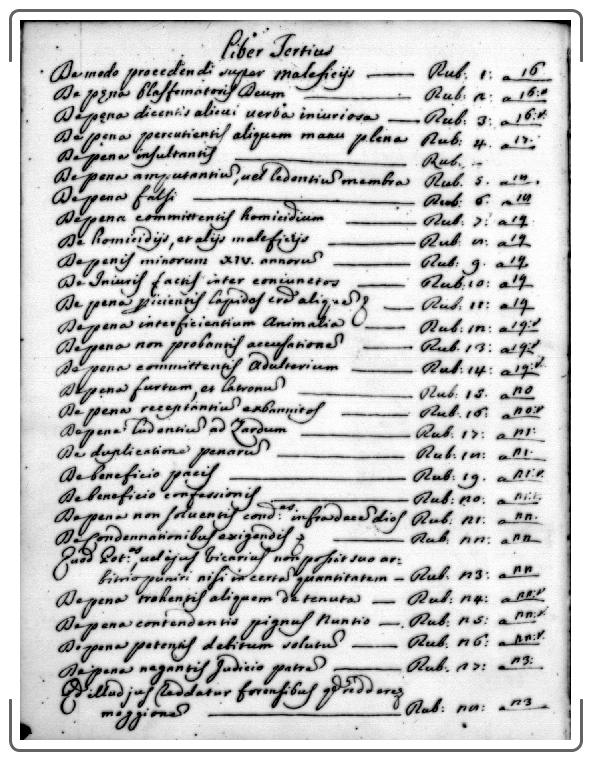 Liber Tertius
De modo procedendi super maleficijs Rub. 1: a 16
De pęna blasfematoris Deum Rub. 2: a 16:v
De pęna dicentis alicui uerba iniuriosa Rub: 3: a 16:v
De pena percutientis aliquem manu plena Rub: 4. a 17.
De pena insultantis Rub.
De pena amputantiu, uel ledentiu membra Rub. 5. a 18.
De pena falsi Rub. 6. a 18
De pena committentis homicidium Rub: 7: a 19
De homicidijs, et alijs maleficijs Rub. 8: a 19
De penis minorum XIV. annoru Rub: 9. a 19
De Iniurijs factis inter coniunctos Rub: 10: a 19
De pena ꝓicientis lapides Rub: 11: a 19
De pena interficientium Animalia Rub. 12: a 19:v
De pena non probantis accusatione Rub: 13: a 19:v
De pena committentis Adulterium Rub: 14: a 19:v
De pena furtum, et latronu Rub: 15. a 20
De pęna receptantiu exbannitos Rub: 16. a 20:v
De pena ludentiu ad Zardum Rub: 17: a 21:
De duplicatione penaru Rub: 18: a 21.
De beneficio pacis Rub: 19. a 21:v
De beneficio confessionis Rub: 20. a 21:v
De pena non soluentis cond:es infra decẽ dies Rub: 21: a 22.
De Condennationibus exigendis Rub: 22: a 22
Quod Pot:as, uel ejus Vicarius non possit suo ar-
bitrio puniri nisi in certa quantitatem Rub: 23: a 22
De pena trahentis aliquem de tenuta Rub: 24: a 22:v
De pena contendentis pignus Nuntio Rub: 25: a 22:v
De pena petentis debitum solutu Rub: 26: a 22:v
De pena negantis Judicio patre Rub: 27: a 23:
illud jus Reddatur forensibus
moggiones Rub: 28: a 23